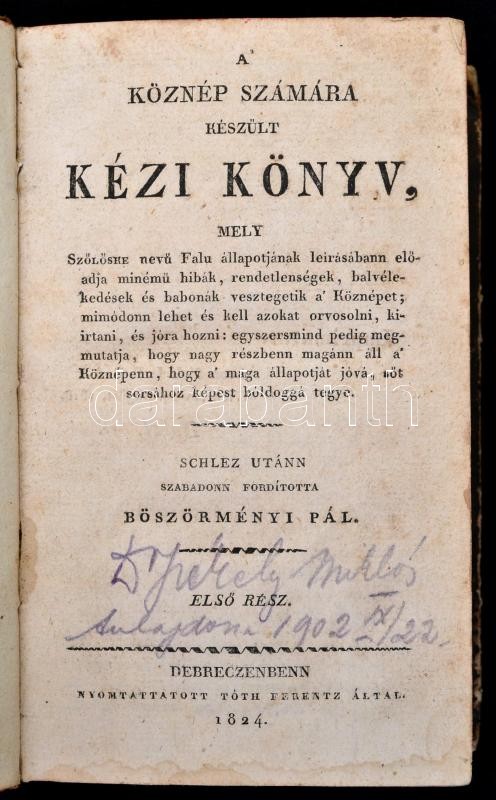 A'
KÖZNÉP SZÁMÁRA
KÉSZÜLT
KÉZI KÖNYV,
MELY
SZŐLŐSHE nevű Falu állapotjának leirásábann elő-
adja minémű hibák, rendetlenségek, balvéle-
kedések és babonák vesztegetik a' Köznépet;
mimódonn lehet és kell azokat orvosolni, ki-
irtani, és jóra hozni: egyszersmind pedig meg-
mutatja, hogy nagy részbenn magánn áll a'
Köznépenn, hogy a' maga állapotját jóvá, sőt
sorsához képest bóldoggá tegye.
darabanth
SCHLEZ UTÁNN
SZABADONN FORDÍTOTTA
BÖSZÖRMÉNYI PÁL.
Dr Székely Miklós
ELSŐ RÉSZ.
tulajdona 1902 IX/22.
DEBRECZENBENN
NYOMTATTATOTT TÓTH FERENTZ ÁLTAL.
1824.